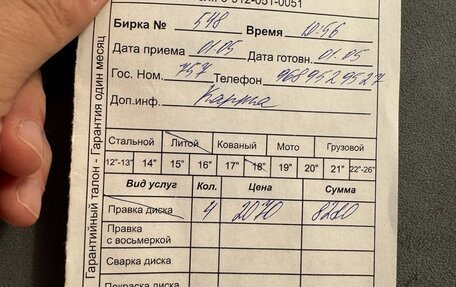 8-912-051-0051
Бирка № 548 Время 10:56
Дата приема 01.05 Дата готовн. 01.05
Гос. Ном. 757 Телефон 9689529527
Доп.инф. Карта
Стальной Литой Кованый Мото Грузовой
12"-13" 14" 15" 16" 17" 18" 19" 20" 21" 22"-26"
Вид услуг Кол. Цена Сумма
Правка диска 4 2070 8280
Правка
с восьмеркой
Сварка диска
Покраска диска
Гарантийный талон - Гарантия один месяц